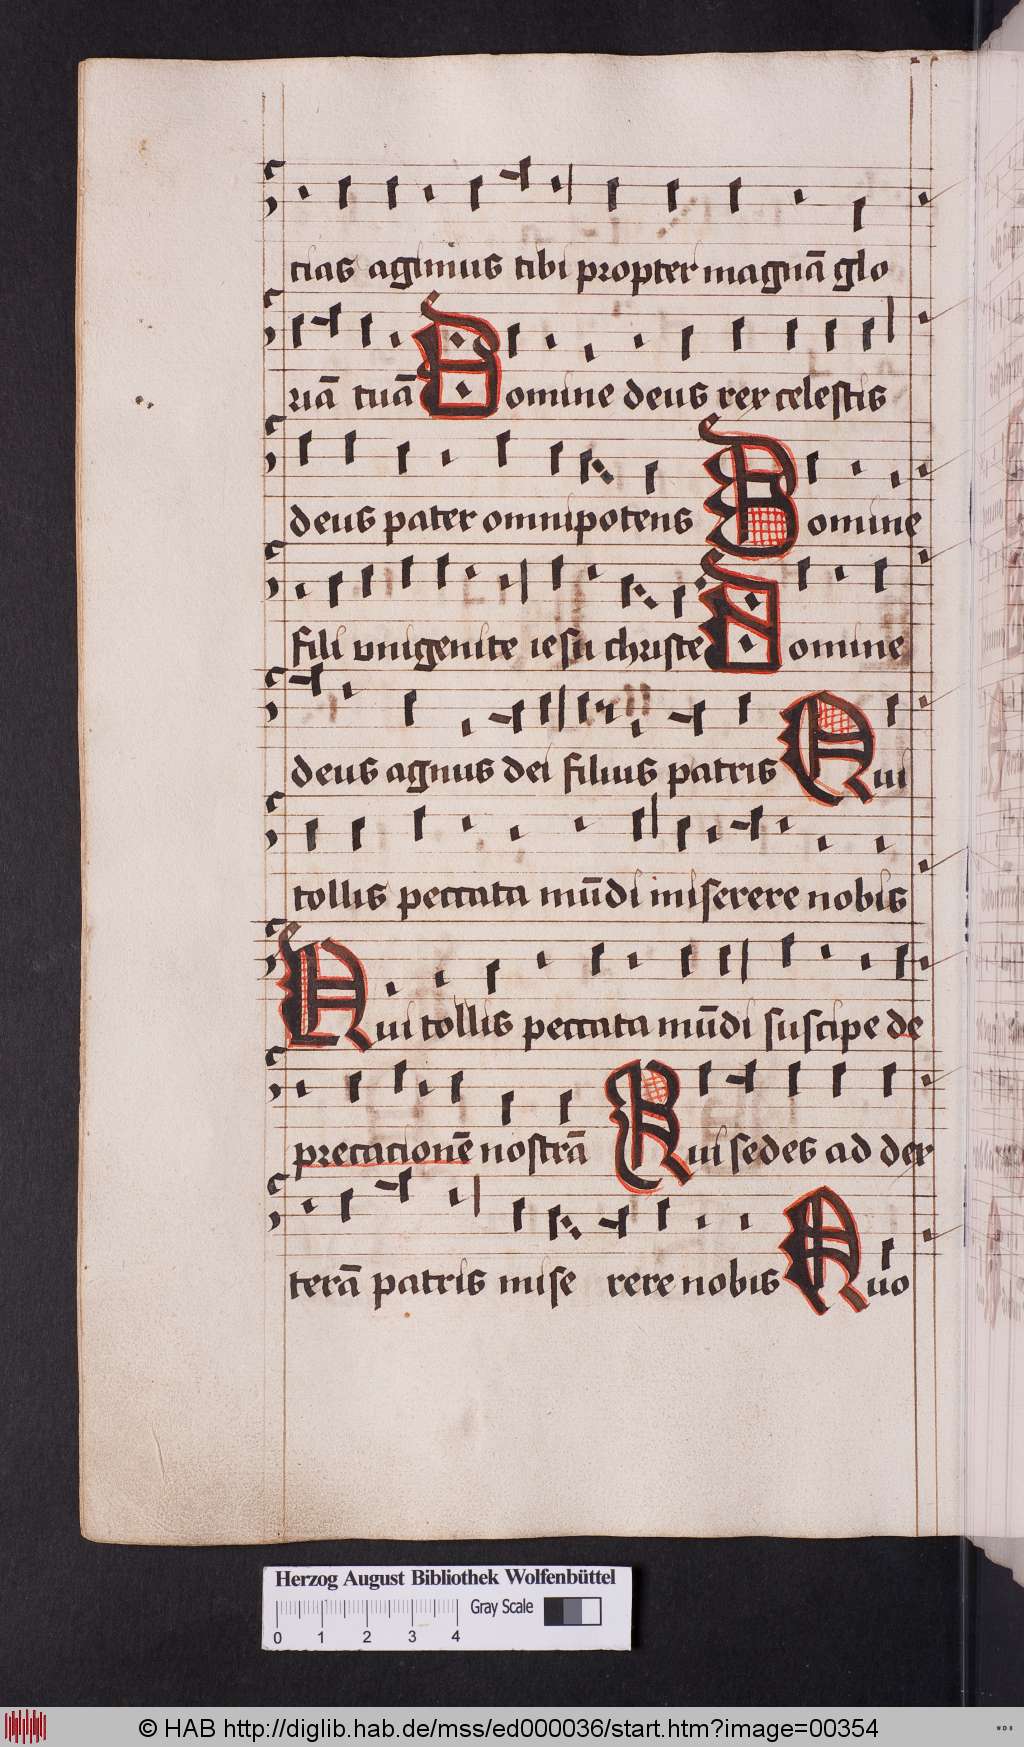 cias agimus tibi propter magnā glo
riā tuā Domine deus rex celestis
deus pater omnipotens Domine
fili vnigenite iesu christe Domine
deus agnus dei filius patris Qui
tollis peccata mūdi miserere nobis
Qui tollis peccata mūdi suscipe de
precacionē nostrā Qui sedes ad dex
terā patris mise rere nobis Quo
Herzog August Bibliothek Wolfenbüttel
Gray Scale
0 1 2 3 4
© HAB http://diglib.hab.de/mss/ed000036/start.htm?image=00354